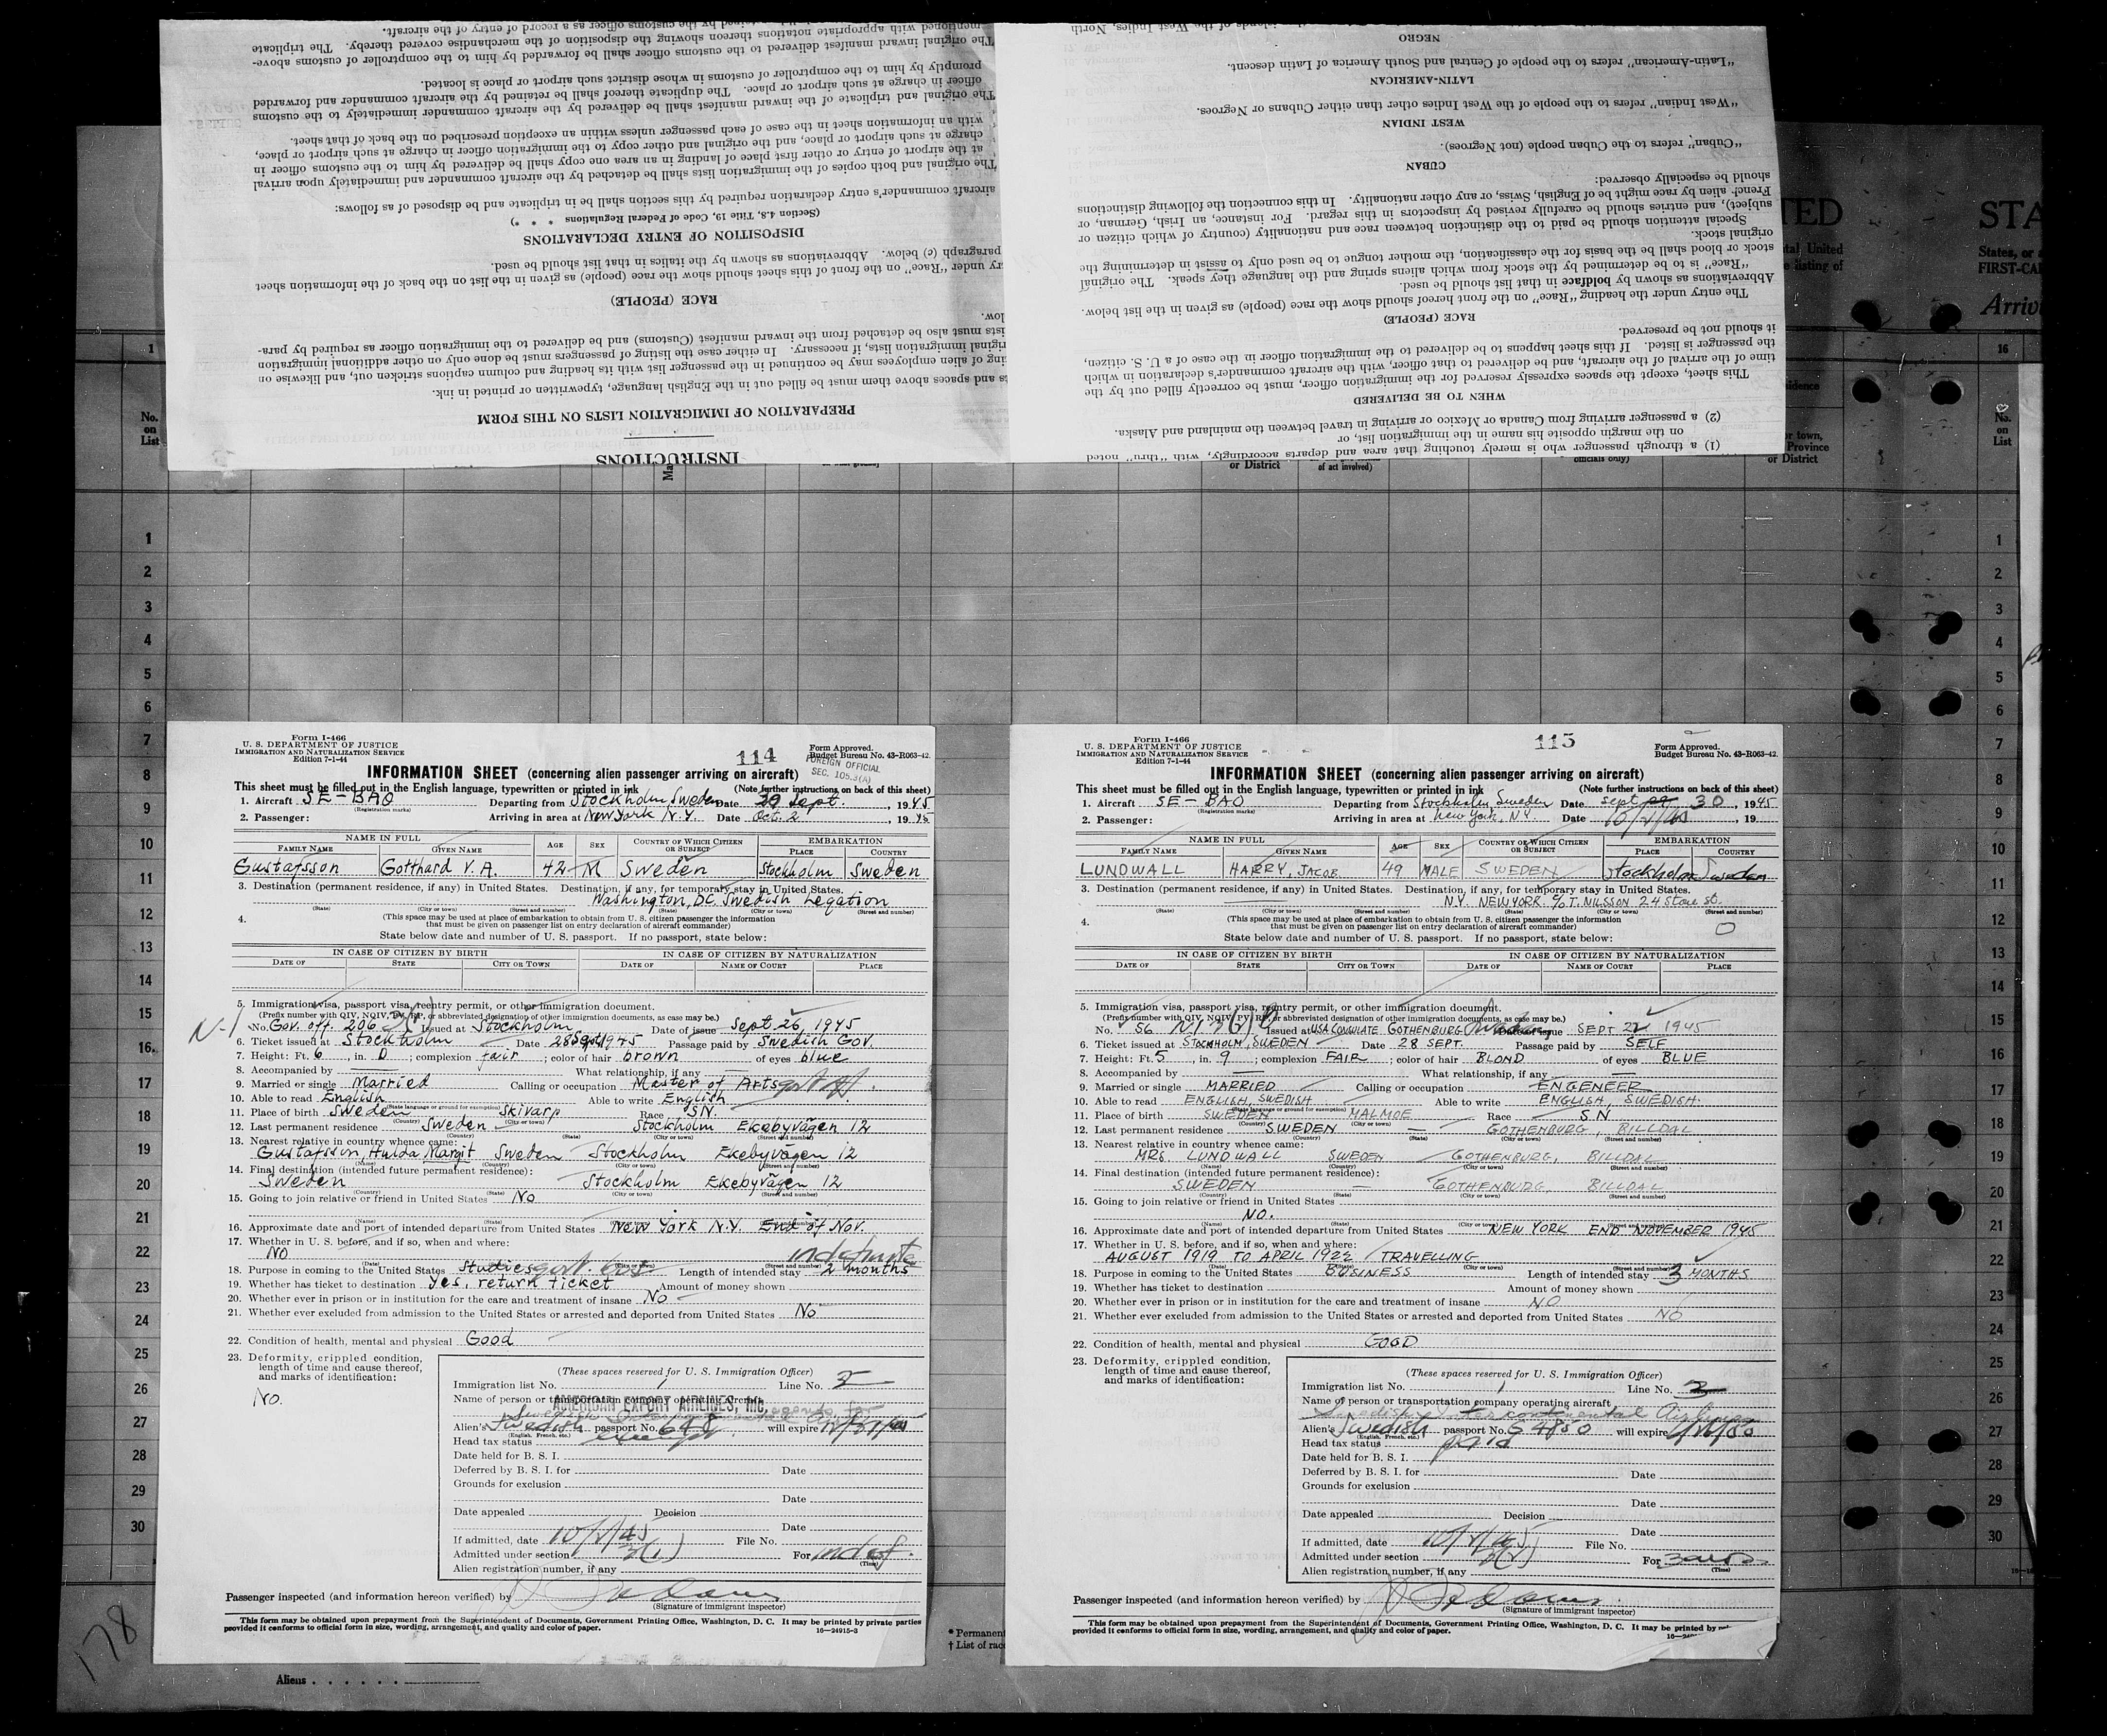 INSTRUCTIONS
PREPARATION OF IMMIGRATION LISTS ON THIS FORM
and spaces above them must be filled out in the English language, typewritten or printed in ink.
ing of alien employees may be continued in the passenger list with its heading and column captions stricken out, and likewise on
original immigration lists, if necessary. In either case the listing of passengers must be done only on other additional immigration
lists must also be detached from the inward manifest (Customs) and be delivered to the immigration officer as required by para-
low.
RACE (PEOPLE)
ry under "Race" on the front of this sheet should show the race (people) as given in the list on the back of the information sheet
paragraph (c) below. Abbreviations as shown by the italics in that list should be used.
DISPOSITION OF ENTRY DECLARATIONS
(Section 4.8, Title 19, Code of Federal Regulations * * *)
aircraft commander's entry declaration required by this section shall be in triplicate and be disposed of as follows:
The original and both copies of the immigration lists shall be detached by the aircraft commander and immediately upon arrival
at the airport of entry or other first place of landing in an area one copy shall be delivered by him to the customs officer in
charge at such airport or place, and the original and other copy to the immigration officer in charge at such airport or place,
with an information sheet in the case of each passenger unless within an exception prescribed on the back of that sheet.
The original and triplicate of the inward manifest shall be delivered by the aircraft commander immediately to the customs
officer in charge at such airport or place. The duplicate thereof shall be retained by the aircraft commander and forwarded
promptly by him to the comptroller of customs in whose district such airport or place is located.
The original inward manifest delivered to the customs officer shall be forwarded by him to the comptroller of customs above-
mentioned with appropriate notations thereon showing the disposition of the merchandise covered thereby. The triplicate
by the customs officer as a record of entry of the aircraft.
(1) a through passenger who is merely touching that area and departs accordingly, with "thru" noted
on the margin opposite his name in the immigration list, or
(2) a passenger arriving from Canada or Mexico or arriving in travel between the mainland and Alaska.
WHEN TO BE DELIVERED
This sheet, except the spaces expressly reserved for the immigration officer, must be correctly filled out by the
time of the arrival of the aircraft, and be delivered to that officer, with the aircraft commander's declaration in which
the passenger is listed. If this sheet happens to be delivered to the immigration officer in the case of a U. S. citizen,
it should not be preserved.
RACE (PEOPLE)
The entry under the heading "Race" on the front hereof should show the race (people) as given in the list below.
Abbreviations as shown by boldface in that list should be used.
"Race" is to be determined by the stock from which aliens spring and the language they speak. The original
stock or blood shall be the basis for the classification, the mother tongue to be used only to assist in determining the
original stock.
Special attention should be paid to the distinction between race and nationality (country of which citizen or
subject), and entries should be carefully revised by inspectors in this regard. For instance, an Irish, German, or
French alien by race might be of English, Swiss, or any other nationality. In this connection the following distinctions
should be especially observed:
CUBAN
"Cuban" refers to the Cuban people (not Negroes).
WEST INDIAN
"West Indian" refers to the people of the West Indies other than either Cubans or Negroes.
LATIN-AMERICAN
"Latin-American" refers to the people of Central and South America of Latin descent.
NEGRO
islands of the West Indies, North
TED
STA
States, or a
FIRST-CA
Arriv
No.
on
List
1
16
or District
of act involved)
officials only)
or town,
Province
or District
Form I-466
U. S. DEPARTMENT OF JUSTICE
IMMIGRATION AND NATURALIZATION SERVICE
Edition 7-1-44
114
Form Approved.
Budget Bureau No. 43-R063-42.
FOREIGN OFFICIAL
SEC. 105.3(A)
INFORMATION SHEET (concerning alien passenger arriving on aircraft)
This sheet must be filled out in the English language, typewritten or printed in ink (Note further instructions on back of this sheet)
1. Aircraft SE-BAO Departing from Stockholm, Sweden Date 30 Sept., 1945
(Registration marks)
2. Passenger: Arriving in area at New York N.Y. Date Oct. 2, 1945
NAME IN FULL AGE SEX COUNTRY OF WHICH CITIZEN OR SUBJECT EMBARKATION
FAMILY NAME GIVEN NAME PLACE COUNTRY
Gustafsson Gotthard V. A. 42 M Sweden Stockholm Sweden
3. Destination (permanent residence, if any) in United States. Destination, if any, for temporary stay in United States.
Washington, D.C. Swedish Legation
(State) (City or town) (Street and number) (State) (City or town) (Street and number)
4. (This space may be used at place of embarkation to obtain from U. S. citizen passenger the information
that must be given on passenger list on entry declaration of aircraft commander)
State below date and number of U. S. passport. If no passport, state below:
IN CASE OF CITIZEN BY BIRTH IN CASE OF CITIZEN BY NATURALIZATION
DATE OF STATE CITY OR TOWN DATE OF NAME OF COURT PLACE
5. Immigration visa, passport visa, reentry permit, or other immigration document.
(Prefix number with QIV, NQIV, PV, RP, or abbreviated designation of other immigration documents, as case may be.)
N-1 No. Gov. off. 206 Issued at Stockholm Date of issue Sept. 26, 1945
6. Ticket issued at Stockholm Date 28 Sept 1945 Passage paid by Swedish Gov.
7. Height: Ft. 6, in. 0; complexion fair; color of hair brown of eyes blue
8. Accompanied by What relationship, if any
9. Married or single Married Calling or occupation Master of Arts
10. Able to read English Able to write English
(State language or ground for exemption)
11. Place of birth Sweden Skivarp Race S.N.
(Country) (City or town)
12. Last permanent residence Sweden Stockholm Ekebyvägen 12
(Country) (State) (City or town) (Street and number)
13. Nearest relative in country whence came:
Gustafsson, Hulda Margit Sweden Stockholm Ekebyvägen 12
(Name) (Country) (City or town) (Street and number)
14. Final destination (intended future permanent residence):
Sweden Stockholm Ekebyvägen 12
(Country) (State) (City or town) (Street and number)
15. Going to join relative or friend in United States No
(Name) (State) (City or town) (Street and number)
16. Approximate date and port of intended departure from United States New York N.Y. End of Nov.
17. Whether in U. S. before, and if so, when and where:
No
indefinite
18. Purpose in coming to the United States Studies govt. bus. Length of intended stay 2 months
19. Whether has ticket to destination Yes, return ticket Amount of money shown
20. Whether ever in prison or in institution for the care and treatment of insane No
21. Whether ever excluded from admission to the United States or arrested and deported from United States No
22. Condition of health, mental and physical Good
23. Deformity, crippled condition,
length of time and cause thereof,
and marks of identification:
No.
(These spaces reserved for U. S. Immigration Officer)
Immigration list No. 1 Line No. 5
Name of person or transportation company operating aircraft
AMERICAN EXPORT AIRLINES, INC. agents for
Swedish Intercontinental Airlines
Alien's Swedish passport No. 648 will expire
(English, French, etc.)
Head tax status exempt
Date held for B. S. I.
Deferred by B. S. I. for Date
Grounds for exclusion
Date
Date appealed Decision
Date
If admitted, date 10/2/45 File No.
Admitted under section 3(1) For indef.
(Time)
Alien registration number, if any
Passenger inspected (and information hereon verified) by
(Signature of immigrant inspector)
This form may be obtained upon prepayment from the Superintendent of Documents, Government Printing Office, Washington, D. C. It may be printed by private parties
provided it conforms to official form in size, wording, arrangement, and quality and color of paper. 16—24915-3
Form I-466
U. S. DEPARTMENT OF JUSTICE
IMMIGRATION AND NATURALIZATION SERVICE
Edition 7-1-44
115
Form Approved.
Budget Bureau No. 43-R063-42.
INFORMATION SHEET (concerning alien passenger arriving on aircraft)
This sheet must be filled out in the English language, typewritten or printed in ink (Note further instructions on back of this sheet)
1. Aircraft SE-BAO Departing from Stockholm, Sweden Date Sept 30, 1945
(Registration marks)
2. Passenger: Arriving in area at New York, N.Y. Date 10/2/45, 19
NAME IN FULL AGE SEX COUNTRY OF WHICH CITIZEN OR SUBJECT EMBARKATION
FAMILY NAME GIVEN NAME PLACE COUNTRY
LUNDWALL HARRY, JACOB 49 MALE SWEDEN Stockholm Sweden
3. Destination (permanent residence, if any) in United States. Destination, if any, for temporary stay in United States.
N.Y. NEW YORK. C/O T. NILSSON 24 Stone St.
(State) (City or town) (Street and number) (State) (City or town) (Street and number)
4. (This space may be used at place of embarkation to obtain from U. S. citizen passenger the information
that must be given on passenger list on entry declaration of aircraft commander)
State below date and number of U. S. passport. If no passport, state below:
IN CASE OF CITIZEN BY BIRTH IN CASE OF CITIZEN BY NATURALIZATION
DATE OF STATE CITY OR TOWN DATE OF NAME OF COURT PLACE
5. Immigration visa, passport visa, reentry permit, or other immigration document.
(Prefix number with QIV, NQIV, PV, RP, or abbreviated designation of other immigration documents, as case may be.)
No. 56 Issued at USA CONSULATE GOTHENBURG Sweden Date of issue SEPT 22 1945
6. Ticket issued at STOCKHOLM, SWEDEN Date 28 SEPT. Passage paid by SELF
7. Height: Ft. 5, in. 9; complexion FAIR; color of hair BLOND of eyes BLUE
8. Accompanied by What relationship, if any
9. Married or single MARRIED Calling or occupation ENGENEER
10. Able to read ENGLISH, SWEDISH Able to write ENGLISH, SWEDISH.
(State language or ground for exemption)
11. Place of birth SWEDEN MALMOE Race S N
(Country) (City or town)
12. Last permanent residence SWEDEN GOTHENBURG, BILLDAL
(Country) (State) (City or town) (Street and number)
13. Nearest relative in country whence came:
MRS. LUNDWALL SWEDEN GOTHENBURG, BILLDAL
(Name) (Country) (City or town) (Street and number)
14. Final destination (intended future permanent residence):
SWEDEN GOTHENBURG, BILLDAL
(Country) (State) (City or town) (Street and number)
15. Going to join relative or friend in United States
NO.
(Name) (State) (City or town) (Street and number)
16. Approximate date and port of intended departure from United States NEW YORK END NOVEMBER 1945
17. Whether in U. S. before, and if so, when and where:
AUGUST 1919 TO APRIL 1922 TRAVELLING
(Date) (City or town) (Street and number)
18. Purpose in coming to the United States BUSINESS Length of intended stay 3 MONTHS
19. Whether has ticket to destination Amount of money shown
20. Whether ever in prison or in institution for the care and treatment of insane NO
21. Whether ever excluded from admission to the United States or arrested and deported from United States NO
22. Condition of health, mental and physical GOOD
23. Deformity, crippled condition,
length of time and cause thereof,
and marks of identification:
(These spaces reserved for U. S. Immigration Officer)
Immigration list No. 1 Line No. 2
Name of person or transportation company operating aircraft
Swedish Intercontinental Airlines
Alien's Swedish passport No. S 4850 will expire
(English, French, etc.)
Head tax status paid
Date held for B. S. I.
Deferred by B. S. I. for Date
Grounds for exclusion
Date
Date appealed Decision
Date
If admitted, date 10/2/45 File No.
Admitted under section 3(2) For 3 mos
(Time)
Alien registration number, if any
Passenger inspected (and information hereon verified) by
(Signature of immigrant inspector)
This form may be obtained upon prepayment from the Superintendent of Documents, Government Printing Office, Washington, D. C. It may be printed by
provided it conforms to official form in size, wording, arrangement, and quality and color of paper.
1
2
3
4
5
6
7
8
9
10
11
12
13
14
15
16
17
18
19
20
21
22
23
24
25
26
27
28
29
30
178
Aliens
* Permanent
† List of rac
No.
on
List
1
2
3
4
5
6
7
8
9
10
11
12
13
14
15
16
17
18
19
20
21
22
23
24
25
26
27
28
29
30